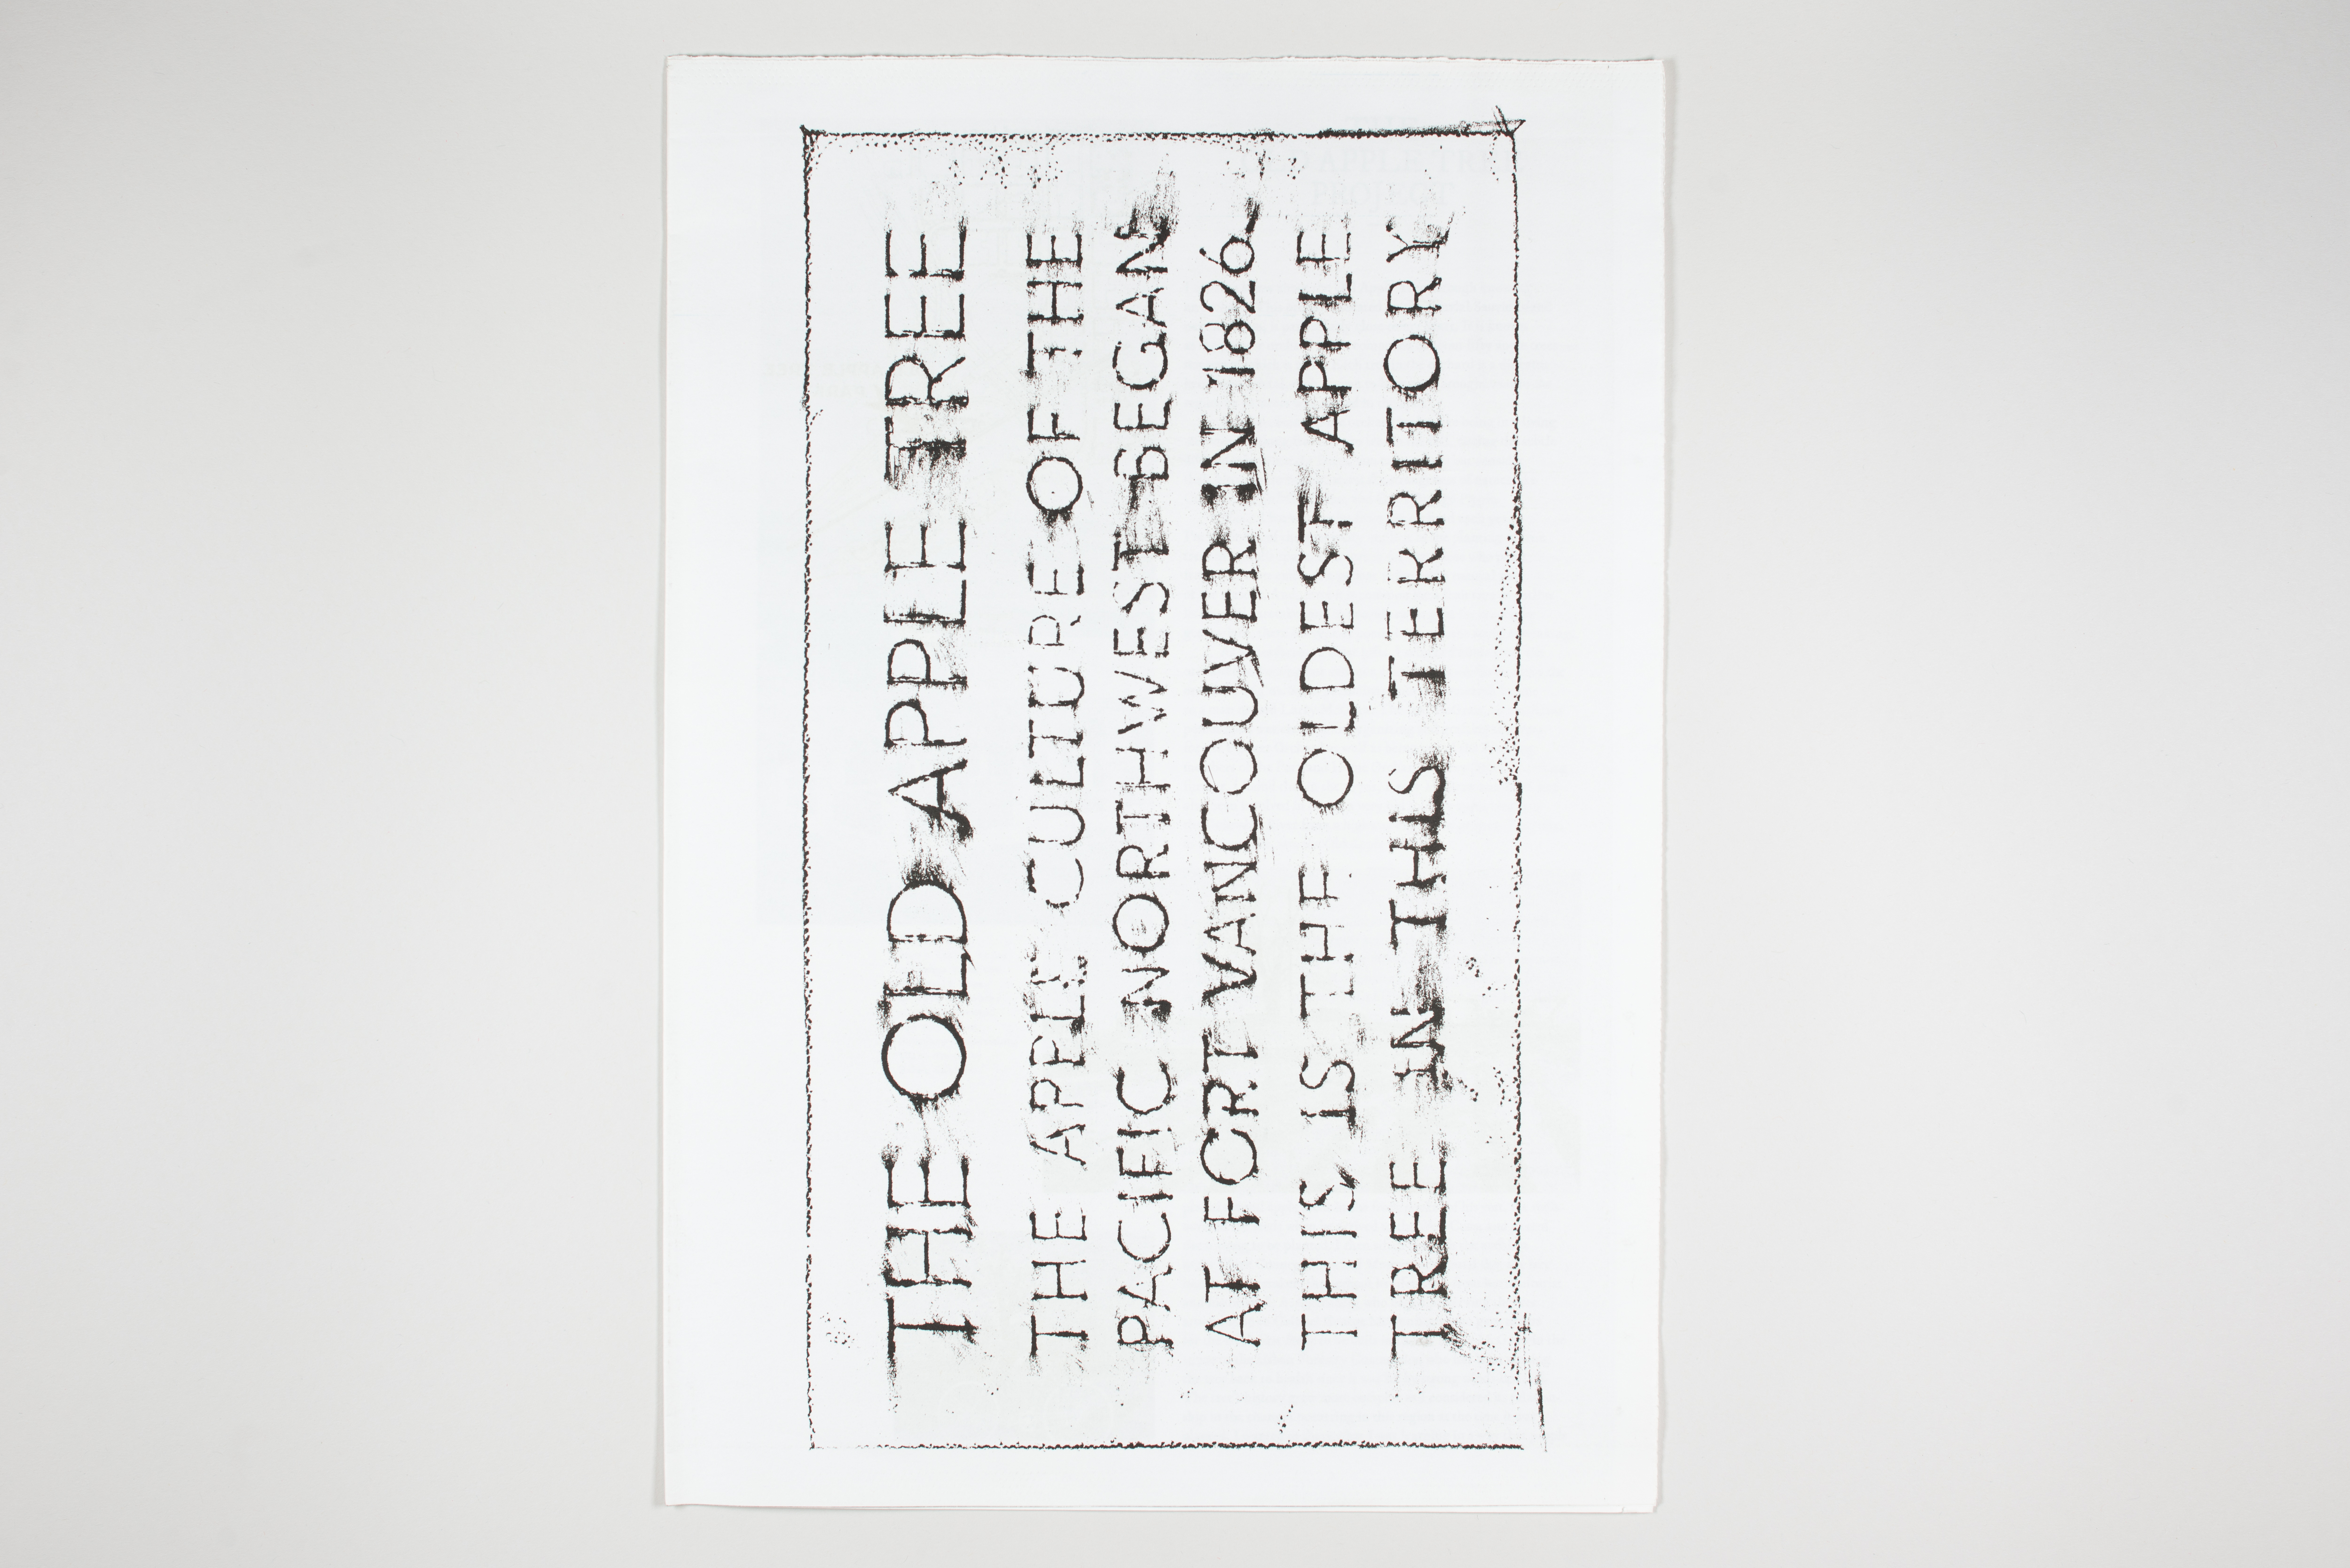 THE OLD APPLE TREE
THE APPLE CULTURE OF THE
PACIFIC NORTHWEST BEGAN
AT FORT VANCOUVER IN 1826.
THIS IS THE OLDEST APPLE
TREE IN THIS TERRITORY